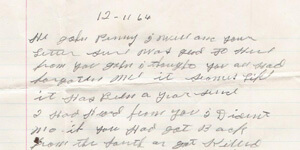 12-11 64
Hi John Penny & ame your
Letter Sure Was good to Here
from you John I thought you all Had
forgotten me! it seames Like
it Has Been a year Since
I Had Heard from you I Diden't
no if you Had got Back
from the South or got Killed